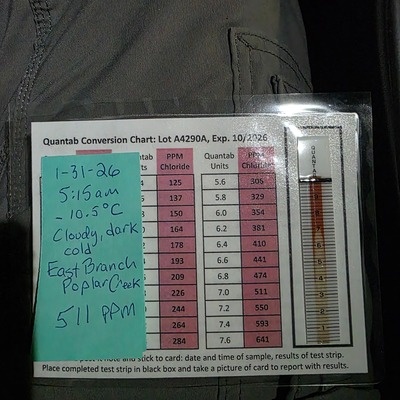 Quantab Conversion Chart: Lot A4290A, Exp. 10/2026
1-31-26
5:15am
-10.5°C
Cloudy, dark
cold
East Branch
Poplar Creek
511 PPM
PPM Chloride Quantab Units PPM Chloride
125 5.6 306
137 5.8 329
150 6.0 354
164 6.2 381
178 6.4 410
193 6.6 441
209 6.8 474
226 7.0 511
244 7.2 550
264 7.4 593
284 7.6 641
it note and stick to card: date and time of sample, results of test strip.
Place completed test strip in black box and take a picture of card to report with results.
QUANTAB